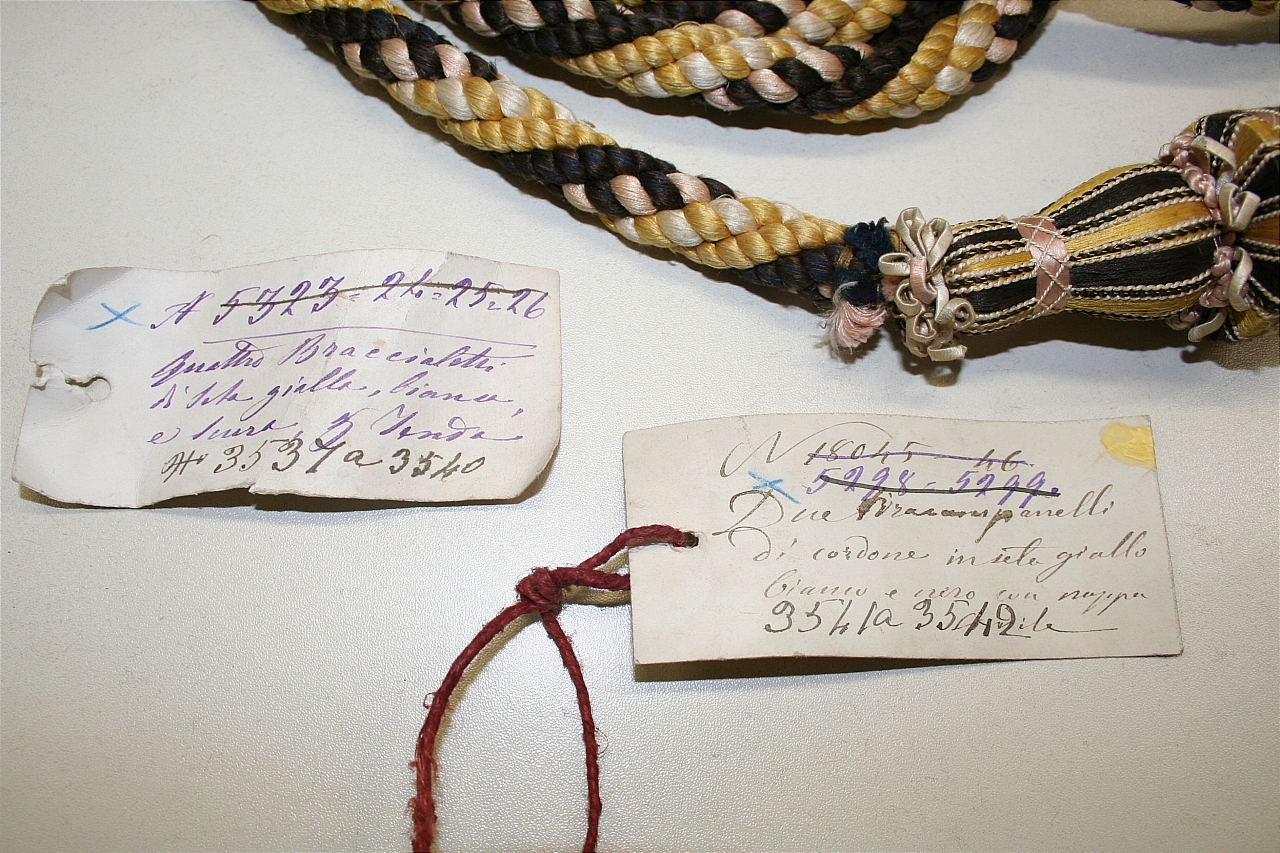 N 5323=24=25=26
Quattro Braccialetti
di seta gialla, bianca,
e scura, p Tenda
N 3537 a 3540
N 18045 46
5298-5299.
Due Tiracampanelli
di cordone in seta giallo
bianco e nero con nappa
3541 a 3542 simile